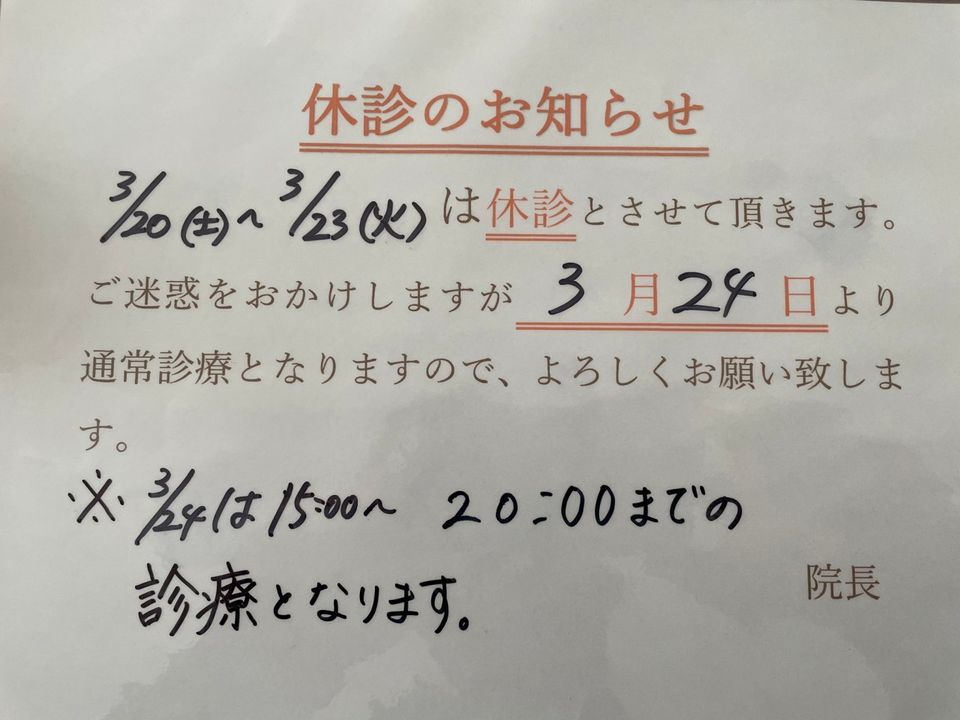 休診のお知らせ
3/20(土)~3/23(火)は休診とさせて頂きます。
ご迷惑をおかけしますが 3月24日より
通常診療となりますので、よろしくお願い致しま
す。
※3/24は15:00~ 20:00までの
診療となります。
院長